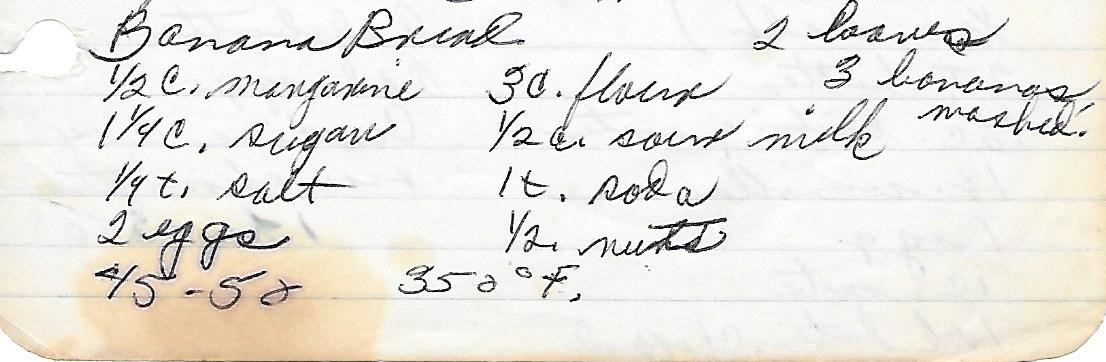 Banana Bread 2 loaves
1/2 c. margarine 3 c. flour 3 bananas
mashed.
1 1/4 c. sugar 1/2 c. sour milk
1/4 t. salt 1 t. soda
2 eggs 1/2. nuts
45-50 350°F.